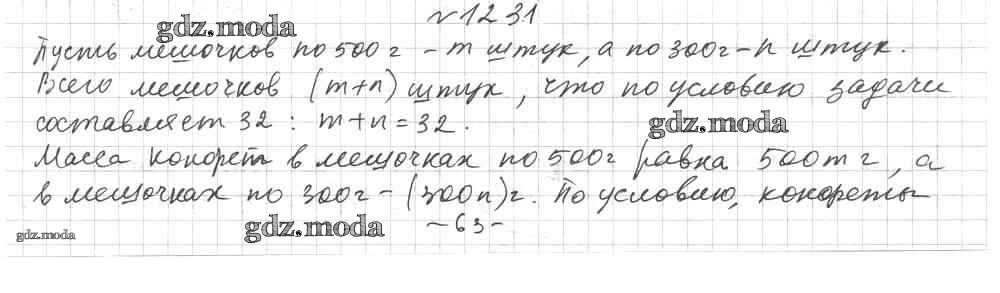 №1231
gdz.moda
Пусть мешочков по 500 г - m штук, а по 300г - n штук.
Всего мешочков (m+n) штук, что по условию задачи
составляет 32 : m+n=32.
gdz.moda
Масса конфет в мешочках по 500г равна 500m г, а
в мешочках по 300г - (300n)г. По условию, конфеты
gdz.moda
-63-
gdz.moda